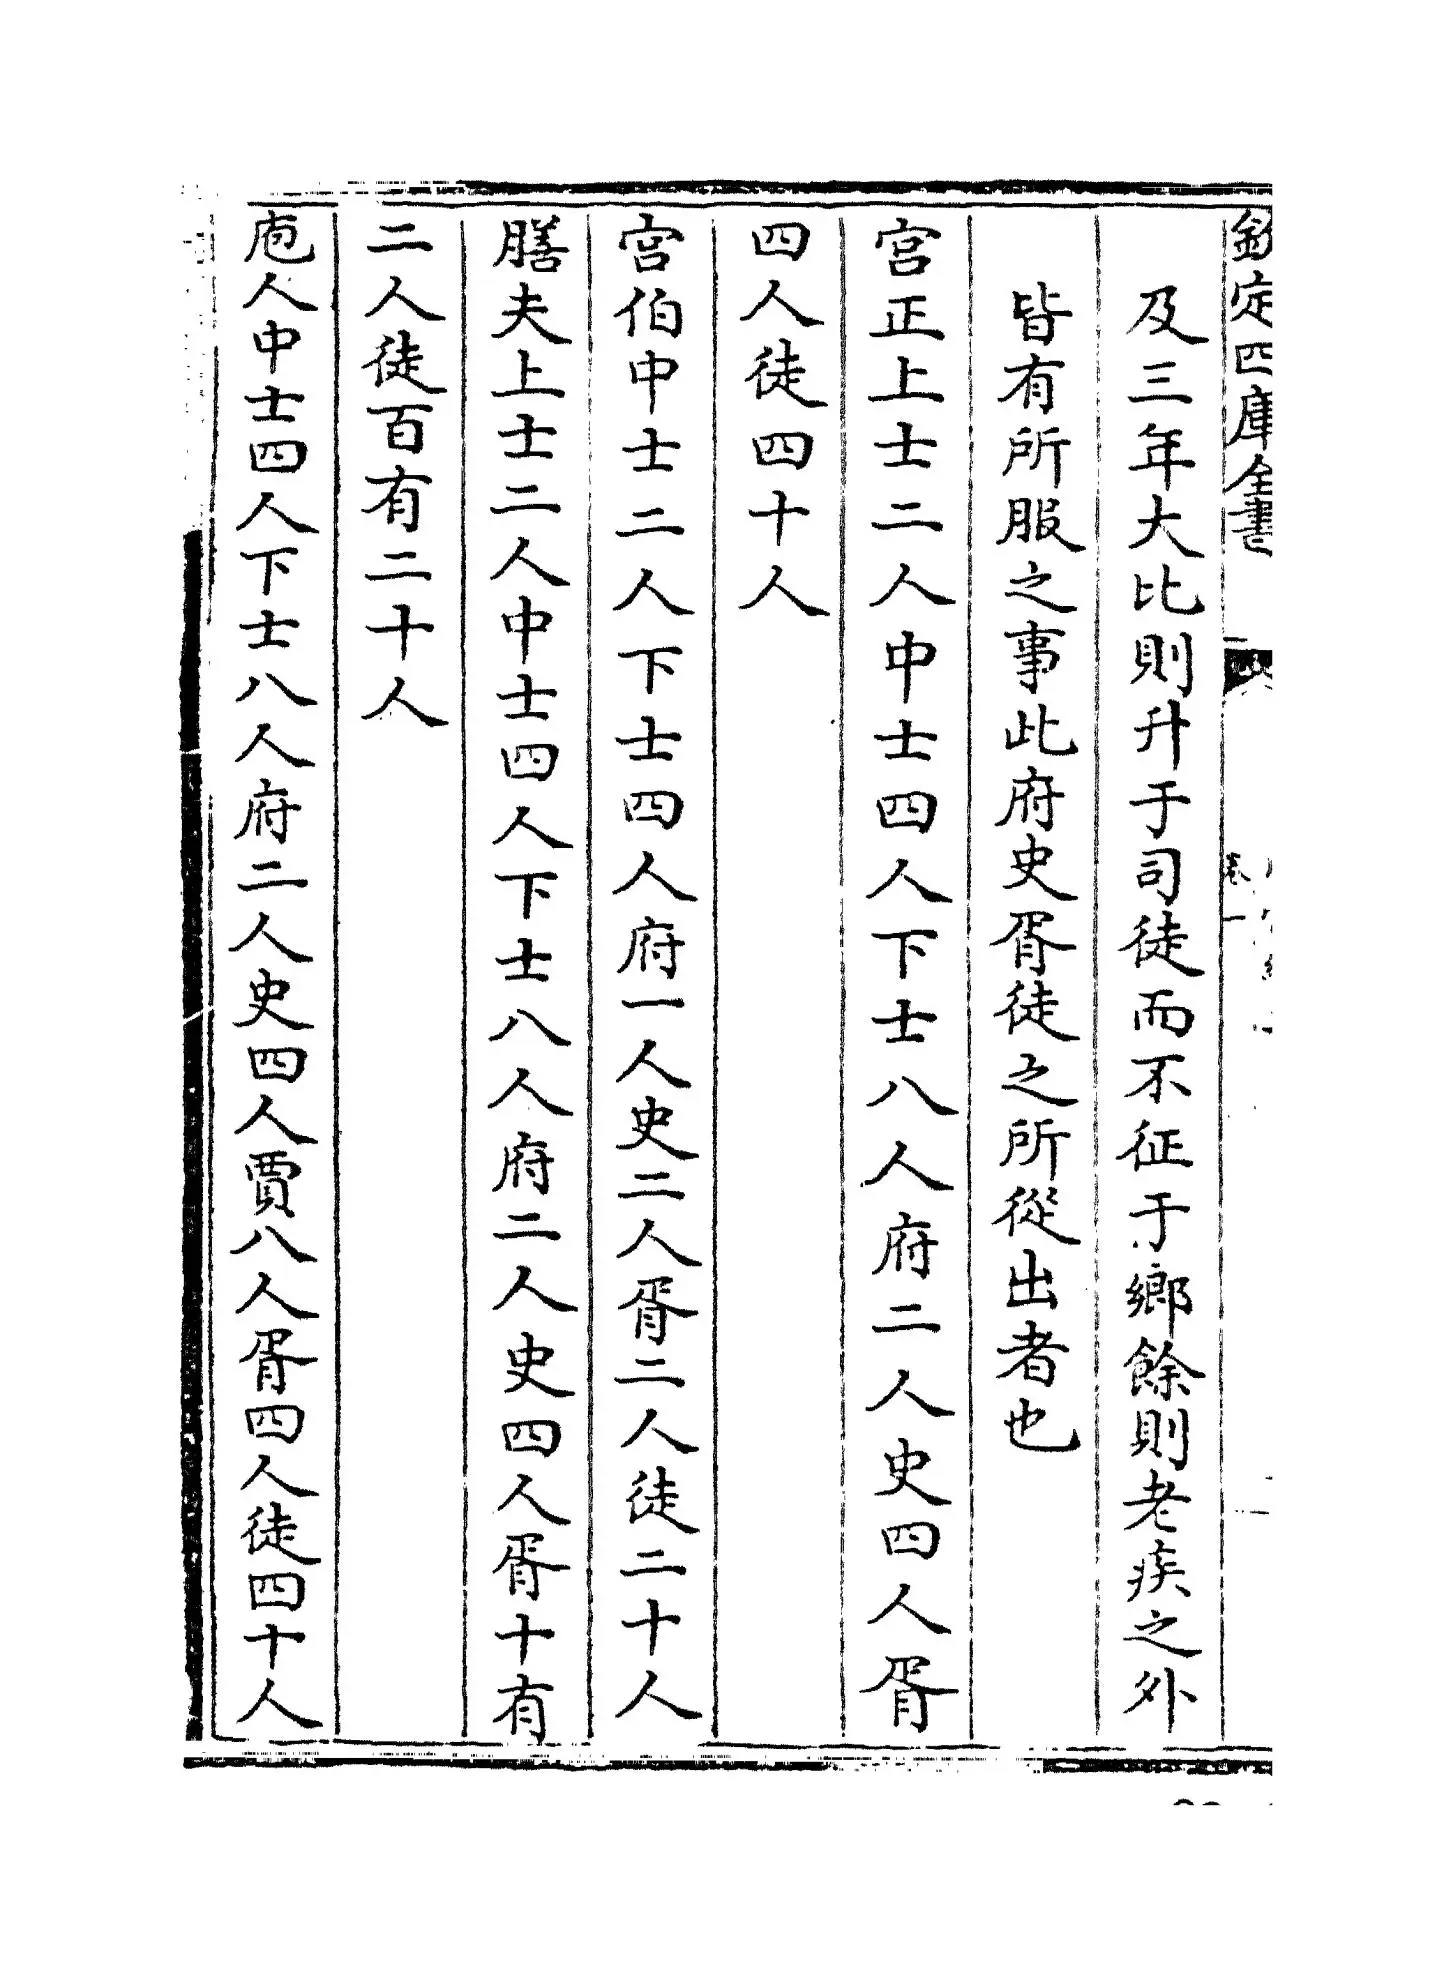 欽定四庫全書
卷一
及三年大比則升于司徒而不征于鄉餘則老疾之外
皆有所服之事此府史胥徒之所從出者也
宫正上士二人中士四人下士八人府二人史四人胥
四人徒四十人
宫伯中士二人下士四人府一人史二人胥二人徒二十人
膳夫上士二人中士四人下士八人府二人史四人胥十有
二人徒百有二十人
庖人中士四人下士八人府二人史四人賈八人胥四人徒四十人